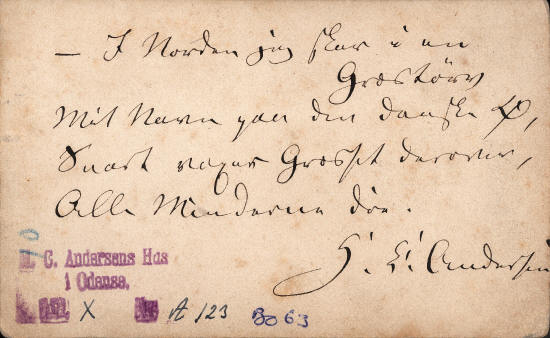 — I Norden jeg skar i en
Græstørv
Mit Navn paa den danske Ø,
Snart voxer Græsset derover,
Alle Minderne døe.
H. C. Andersen
C. Andersens Hus
i Odense.
X
A 123
Bo 63